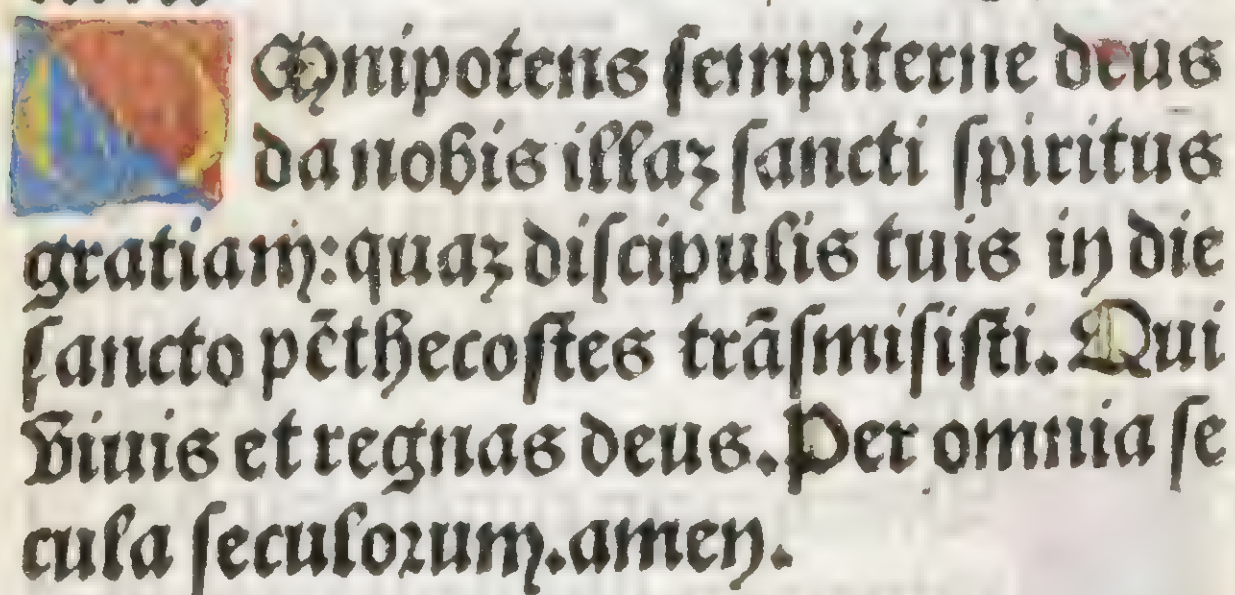 Omnipotens sempiterne deus
da nobis illaz sancti spiritus
gratiam: quaz discipulis tuis in die
sancto pēthecostes trāsmisisti. Qui
viuis et regnas deus. Per omnia se
cula seculorum. amen.